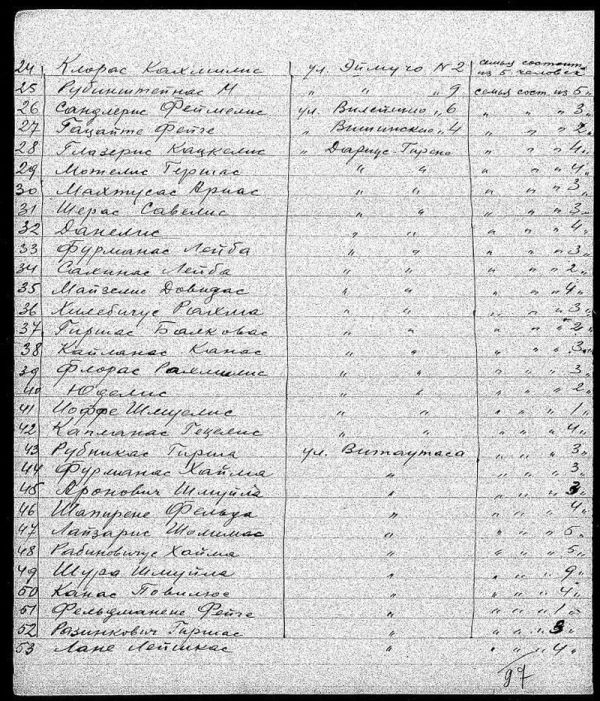 24 Клорас Кахмилис ул. Эймучо N 2 семья состоит из 5 человек
25 Рубинштейнас М „ „ 9 семья сост. из 5 „
26 Сандлерис Феймелис ул. „ 6 „ „ „ 3 „
27 Гацайте Фейге „ „ 4 „ „ „ 2 „
28 Глазерис Кацкелис „ Дариус-Гирено „ „ „ 4 „
29 Мотелис Гершас „ „ „ „ „ 4 „
30 Махтусас Арнас „ „ „ „ „ 3 „
31 Шерас Савелис „ „ „ „ „ 3 „
32 Данелис „ „ „ „ „ 4 „
33 Фурманас Лейба „ „ „ „ „ 3 „
34 Салинас Лейба „ „ „ „ „ 2 „
35 Майзелис Довидас „ „ „ „ „ 4 „
36 Хилебичус Рахма „ „ „ „ „ 3 „
37 Гиршас Балковас „ „ „ „ „ 2 „
38 Кайланас Канас „ „ „ „ „ 3 „
39 Флорас Рахмилис „ „ „ „ „ 3 „
40 Юделис „ „ „ „ „ 2 „
41 Иоффе Шмуелис „ „ „ „ „ 1 „
42 Капланас Гецелис „ „ „ „ „ 4 „
43 Рубникас Гирша ул. Витаутаса „ „ „ 3 „
44 Фурманас Хайма „ „ „ „ 3 „
45 Аронович Шмуйла „ „ „ „ 3 „
46 Шапирене Фельда „ „ „ „ 4 „
47 Лайзарис Шолимас „ „ „ „ 5 „
48 Рабиновичус Хайма „ „ „ „ 5 „
49 Шура Шмуйла „ „ „ „ 9 „
50 Канас Повилюс „ „ „ „ 4 „
51 Фельдманене Фейге „ „ „ „ 1 „
52 Разинкович Гиршас „ „ „ „ 3 „
53 Лане Лейшкас „ „ „ „ 4 „
97